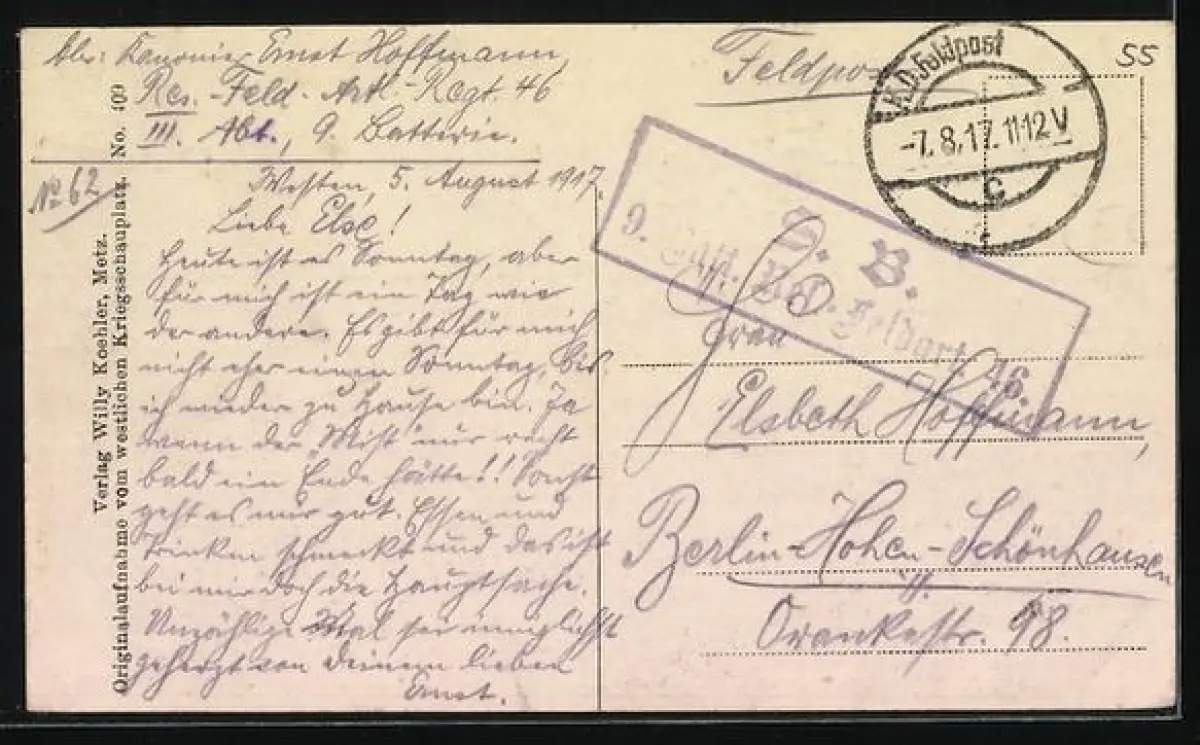 Abs: Kanonier Ernst Hoffmann,
Res.-Feld-Artl.-Regt. 46
III. Abt., 9. Batterie.
Nº 62
Westen, 5. August 1917.
Liebe Else!
Heute ist es Sonntag, aber
für mich ist ein Tag wie
der andere. Es gibt für mich
nicht eher einen Sonntag, bis
ich wieder zu Hause bin. Ja
wenn der "Mist" nur recht
bald ein Ende hätte!! Sonst
geht es mir gut. Essen und
Trinken schmeckt und das ist
bei mir doch die Hauptsache.
Unzählige Mal sei inniglichst
geherzt von deinem lieben
Ernst.
Verlag Willy Koehler, Metz.
Originalaufnahme vom westlichen Kriegsschauplatz. No. 409
Feldpost
K.D. Feldpost
-7.8.17. 11-12 V
c
55
S. B.
9. Batt. Res. Feldart. 46.
Frau
Elsbeth Hoffmann,
Berlin-Hohen-Schönhausen
Orankestr. 98.